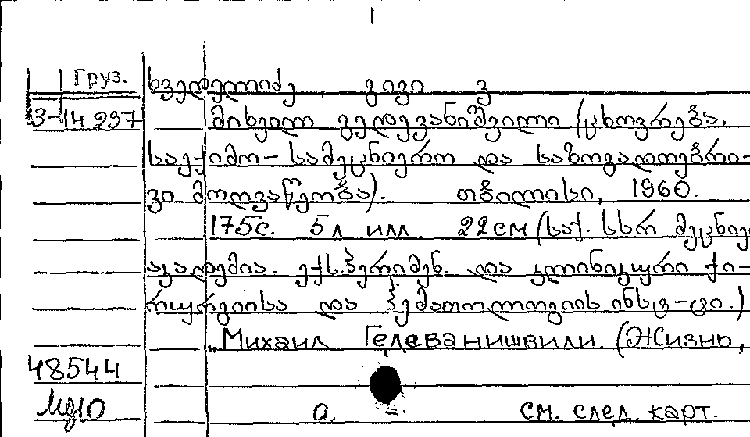 Груз.
ხვედელიძე, გივი ვ
З-14 237
მიხეილ გედევანიშვილი (ცხოვრება,
საექიმო-სამეცნიერო და საზოგადოებრი-
ვი მოღვაწეობა). თბილისი, 1960.
175с. 5л илл. 22см (საქ. სსრ მეცნიე
აკადემია. ექსპერიმენ. და კლინიკური ქი-
რურგიისა და ჰემატოლოგიის ინსტ-ტი.)
„Михаил Гедеванишвили (Жизнь,
48544
0 см. след. карт.